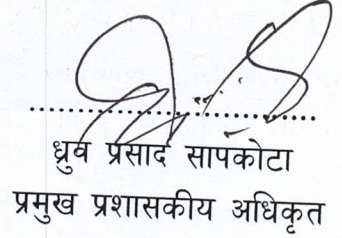 ध्रुव प्रसाद सापकोटा
प्रमुख प्रशासकीय अधिकृत